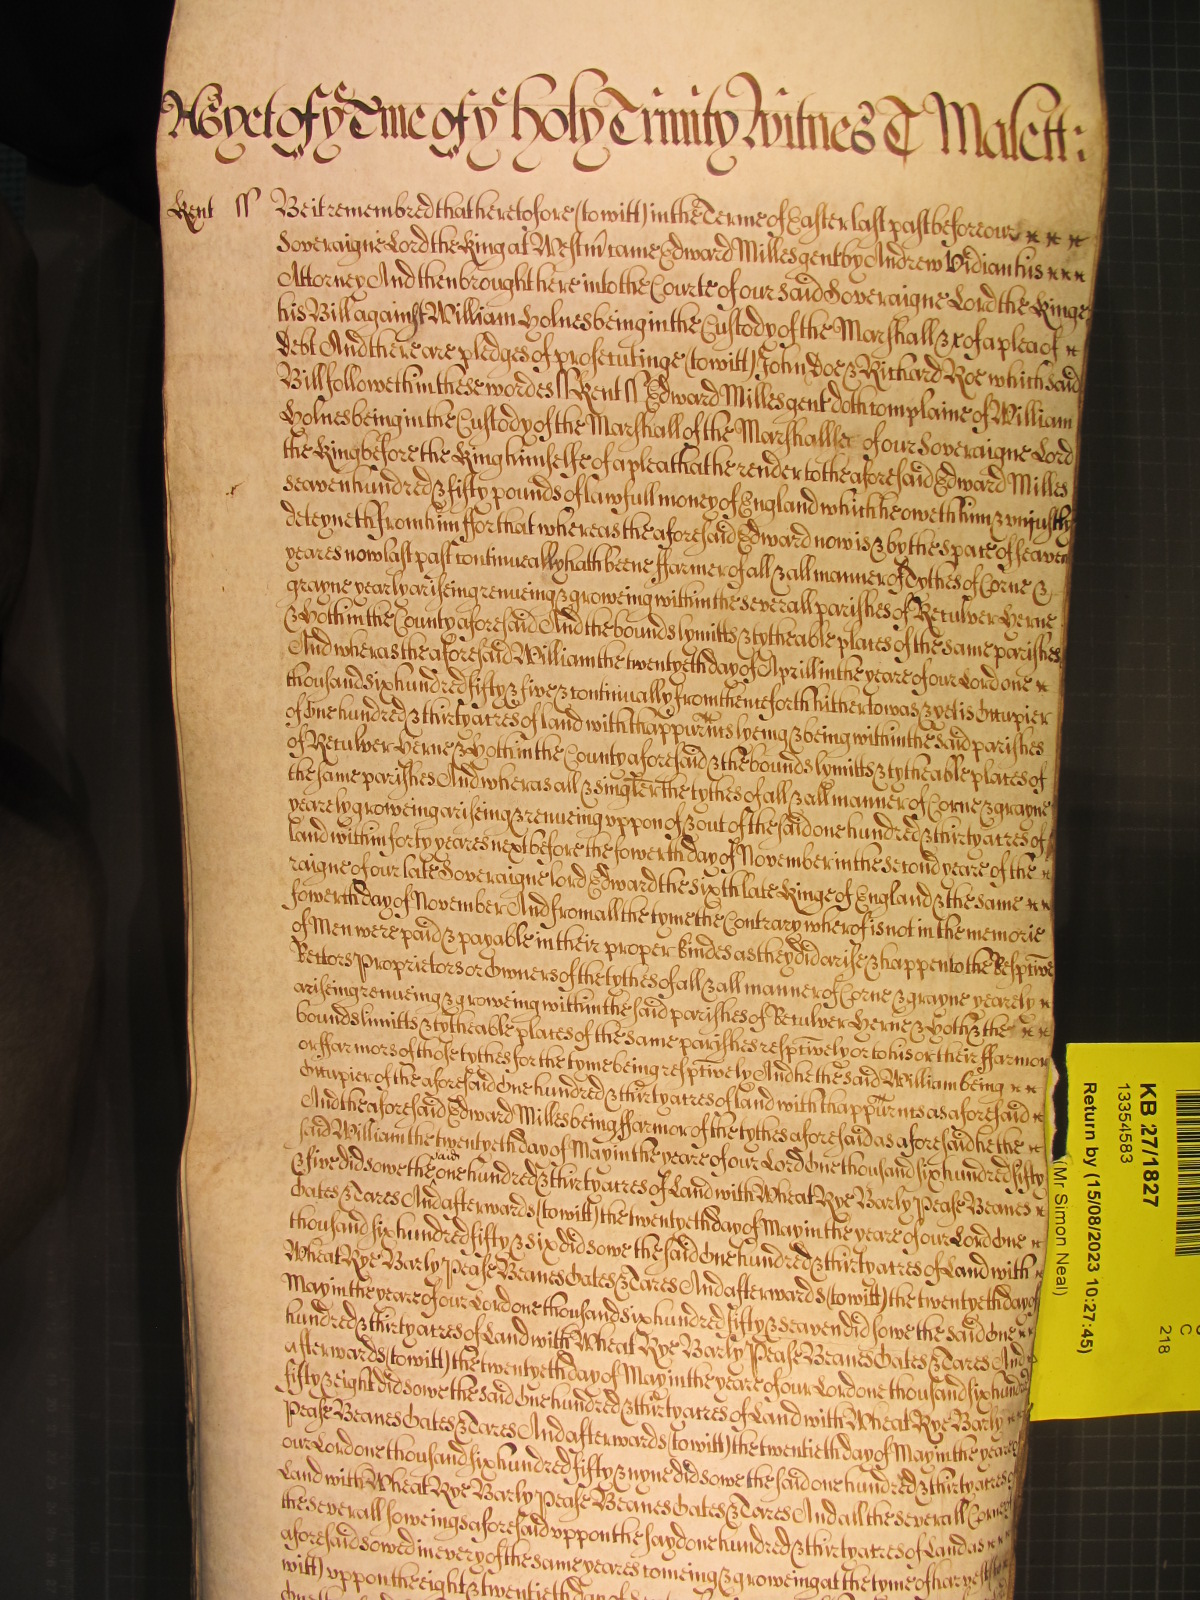 As yet of ye Tme of ye holy Trinity Witnes T Malett:
Kent ss Be it remembred that heretofore (to witt) in the Terme of Easter last past before our
Soveraigne Lord the King at Westm came Edward Milles gent by Andrew Vidian his
Attorney And then brought here into the Courte of our said Soveraigne Lord the Kinge
his Bill against William Holnes being in the Custody of the Marshall &c of a plea of
Debt And there are pledges of prosecutinge (to witt) John Doe & Richard Roe which said
Bill followeth in these wordes ss Kent ss Edward Milles gent doth complaine of William
Holnes being in the Custody of the Marshall of the Marshallsee of our Soveraigne Lord
the King before the King himselfe of a plea that he render to the aforesaid Edward Milles
seaven hundred & fifty pounds of lawfull money of England which he oweth him & uniustly
deteyneth from him ffor that whereas the aforesaid Edward now is & by the space of seaven
yeares now last past continually hath beene ffarmer of all & all manner of Tythes of Corne &
grayne yearly ariseing renueing & groweing within the severall parishes of Reculver Herne
& Hoth in the County aforesaid And the bounds lymitts & titheable places of the same parishes
And wheras the aforesaid William the twentyeth day of Aprill in the yeare of our Lord one
thousand six hundred fifty & five & continually from thenceforth hitherto was & yet is Occupier
of One hundred & thirty acres of land with thappurtnis lyeing & being within the said parishes
of Reculver Herne & Hoth in the County aforesaid & the bounds lymitts & tytheable places of
the same parishes And wheras all & singler the tythes of all & all manner of Corne & grayne
yearely groweing ariseing & renueing uppon of & out of the said one hundred & thirty acres of
land within forty yeares next before the fowerth day of November in the second yeare of the
raigne of our late Soveraigne lord Edward the sixth late Kinge of England & the same
fowerth day of November And from all the tyme the Contrary wherof is not in the memorie
of Men were paid & payable in their proper kindes as they did arise & happen to the Resptive
Rectors Proprietors or Owners of the tythes of all & all manner of Corne & grayne yearely
ariseing renueing & groweing within the said parishes of Reculver Herne & Hoth & the
bounds limitts & tytheable places of the same parishes resptively or to his or their ffarmor
or ffarmors of those tythes for the tyme being resptively And he the said William being
Occupier of the aforesaid One hundred & thirty acres of land with thappurtnis as aforesaid
And the aforesaid Edward Milles being ffarmor of the tythes aforesaid as aforesaid he the
said William the twentyeth day of May in the yeare of our Lord One thousand six hundred fifty
& five did sowe the said one hundred & thirty acres of Land with Wheat Rye Barly Pease Beanes
Oates & Tares And afterwards (to witt) the twentyeth day of May in the yeare of our Lord One
thousand six hundred fifty & six did sowe the said One hundred & thirty acres of Land with
Wheat Rye Barly Pease Beanes Oates & Tares And afterwards (to witt) the twentyeth day of
May in the yeare of our Lord one thousand six hundred fifty & seaven did sowe the said One
hundred & thirty acres of Land with Wheat Rye Barly Pease Beanes Oates & Tares And
afterwards (to witt) the twentyeth day of May in the yeare of our Lord one thousand six hundred
fifty & eight did sowe the said One hundred & thirty acres of Land with Wheat Rye Barly
Pease Beanes Oates & Tares And afterwards (to witt) the twentieth day of May in the yeare of
our Lord one thousand six hundred fifty & nyne did sowe the said one hundred & thirty acres of
Land with Wheat Rye Barly Pease Beanes Oates & Tares And all the severall Cornes
the severall soweings aforesaid uppon the sayd one hundred & thirty acres of Land as
aforesaid sowed in every of the same yeares comeing & groweing at the tyme of harvest (to
witt) uppon the eight & twentieth day of
KB 27/1827
13354583
Return by (15/08/2023 10:27:45)
(Mr Simon Neal)
C
218